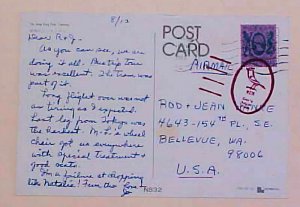 8/13
Dear R & J-
As you can see, we are
doing it all. This trip tour
was excellent. The Tram was
part of it.
Long flight over was not
as tiring as I expected.
Last leg from Tokyo was
the hardest. M-L's wheel
chair got us everywhere
with special treatment &
good seats.
I'm a failure at shopping
like Natalie! Fun tho
Love
POST
CARD
AIRMAIL
ROD + JEAN
4643-154TH PL. S.E.
BELLEVUE, WA.
98006
U.S.A.
N832